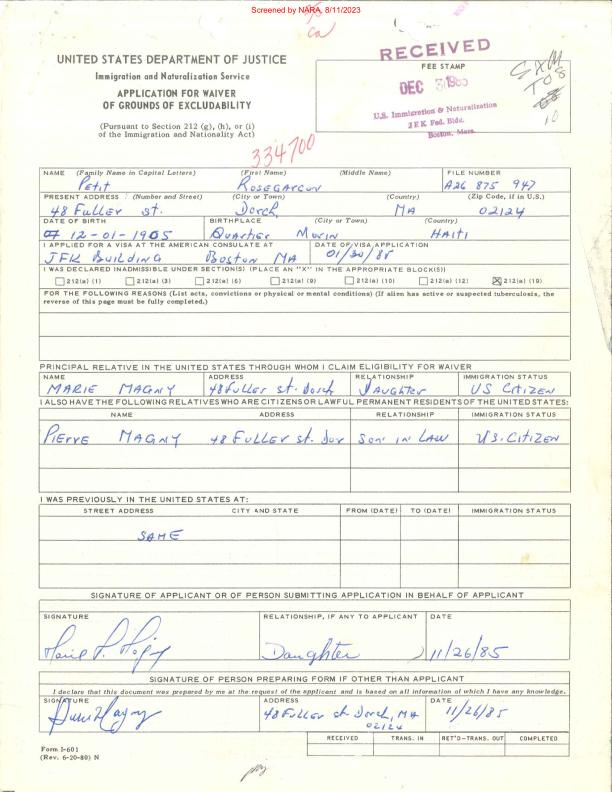 Screened by NARA, 8/11/2023
ca
UNITED STATES DEPARTMENT OF JUSTICE
Immigration and Naturalization Service
APPLICATION FOR WAIVER
OF GROUNDS OF EXCLUDABILITY
(Pursuant to Section 212 (g), (h), or (i)
of the Immigration and Nationality Act)
RECEIVED
FEE STAMP
DEC 3 1985
U.S. Immigration & Naturalization
JFK Fed. Bldg.
Boston, Mass.
10
334700
NAME (Family Name in Capital Letters) (First Name) (Middle Name) FILE NUMBER
Petit Rosegarcon A26 875 947
PRESENT ADDRESS (Number and Street) (City or Town) (Country) (Zip Code, if in U.S.)
48 Fuller st. Dorch, MA 02124
DATE OF BIRTH BIRTHPLACE (City or Town) (Country)
12-01-1905 Quartier Morin HAITI
I APPLIED FOR A VISA AT THE AMERICAN CONSULATE AT DATE OF VISA APPLICATION
JFK Building Boston MA 01/30/85
I WAS DECLARED INADMISSIBLE UNDER SECTION(S) (PLACE AN "X" IN THE APPROPRIATE BLOCK(S))
212(a) (1) 212(a) (3) 212(a) (6) 212(a) (9) 212(a) (10) 212(a) (12) X 212(a) (19)
FOR THE FOLLOWING REASONS (List acts, convictions or physical or mental conditions) (If alien has active or suspected tuberculosis, the
reverse of this page must be fully completed.)
PRINCIPAL RELATIVE IN THE UNITED STATES THROUGH WHOM I CLAIM ELIGIBILITY FOR WAIVER
NAME ADDRESS RELATIONSHIP IMMIGRATION STATUS
MARIE MAGNY 48 Fuller st. Dorch Daughter US CITIZEN
I ALSO HAVE THE FOLLOWING RELATIVES WHO ARE CITIZENS OR LAWFUL PERMANENT RESIDENTS OF THE UNITED STATES:
NAME ADDRESS RELATIONSHIP IMMIGRATION STATUS
PIERRE MAGNY 48 Fuller st. Dor Son in LAW U.S. CITIZEN
I WAS PREVIOUSLY IN THE UNITED STATES AT:
STREET ADDRESS CITY AND STATE FROM (DATE) TO (DATE) IMMIGRATION STATUS
SAME
SIGNATURE OF APPLICANT OR OF PERSON SUBMITTING APPLICATION IN BEHALF OF APPLICANT
SIGNATURE RELATIONSHIP, IF ANY TO APPLICANT DATE
Daughter 11/26/85
SIGNATURE OF PERSON PREPARING FORM IF OTHER THAN APPLICANT
I declare that this document was prepared by me at the request of the applicant and is based on all information of which I have any knowledge.
SIGNATURE ADDRESS DATE
48 Fuller st Dorch, MA 11/26/85
02124
RECEIVED TRANS. IN RET'D-TRANS. OUT COMPLETED
Form I-601
(Rev. 6-20-80) N